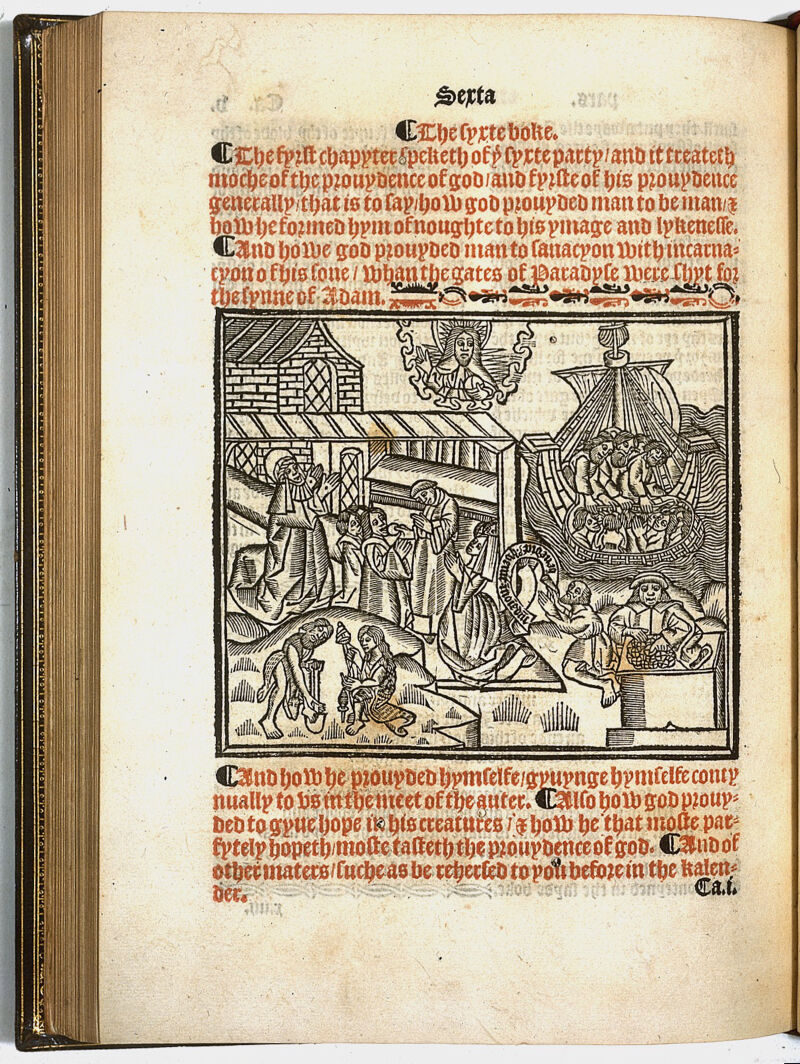 Sexta
¶The syxte boke.
¶The fyrst chapyter speketh of yͤ syxte party/and it treateth
moche of the prouydence of god/and fyrste of his prouydence
generally/that is to say/how god prouyded man to be man/⁊
how he formed hym of noughte to his ymage and lykenesse.
¶And howe god prouyded man to sanacyon with incarna=
cyon of his sone/whan the gates of Paradyse were shyt for
the synne of Adam.
¶And how he prouyded hymselfe/gyuynge hymselfe conty
nually to vs in the meet of the auter. ¶Also how god prouy=
ded to gyue hope in his creatures/⁊ how he that moste par=
fytely hopeth/moste tasteth the prouydence of god. ¶And of
other maters/suche as be rehersed to you before in the kalen=
der. Ca.i.